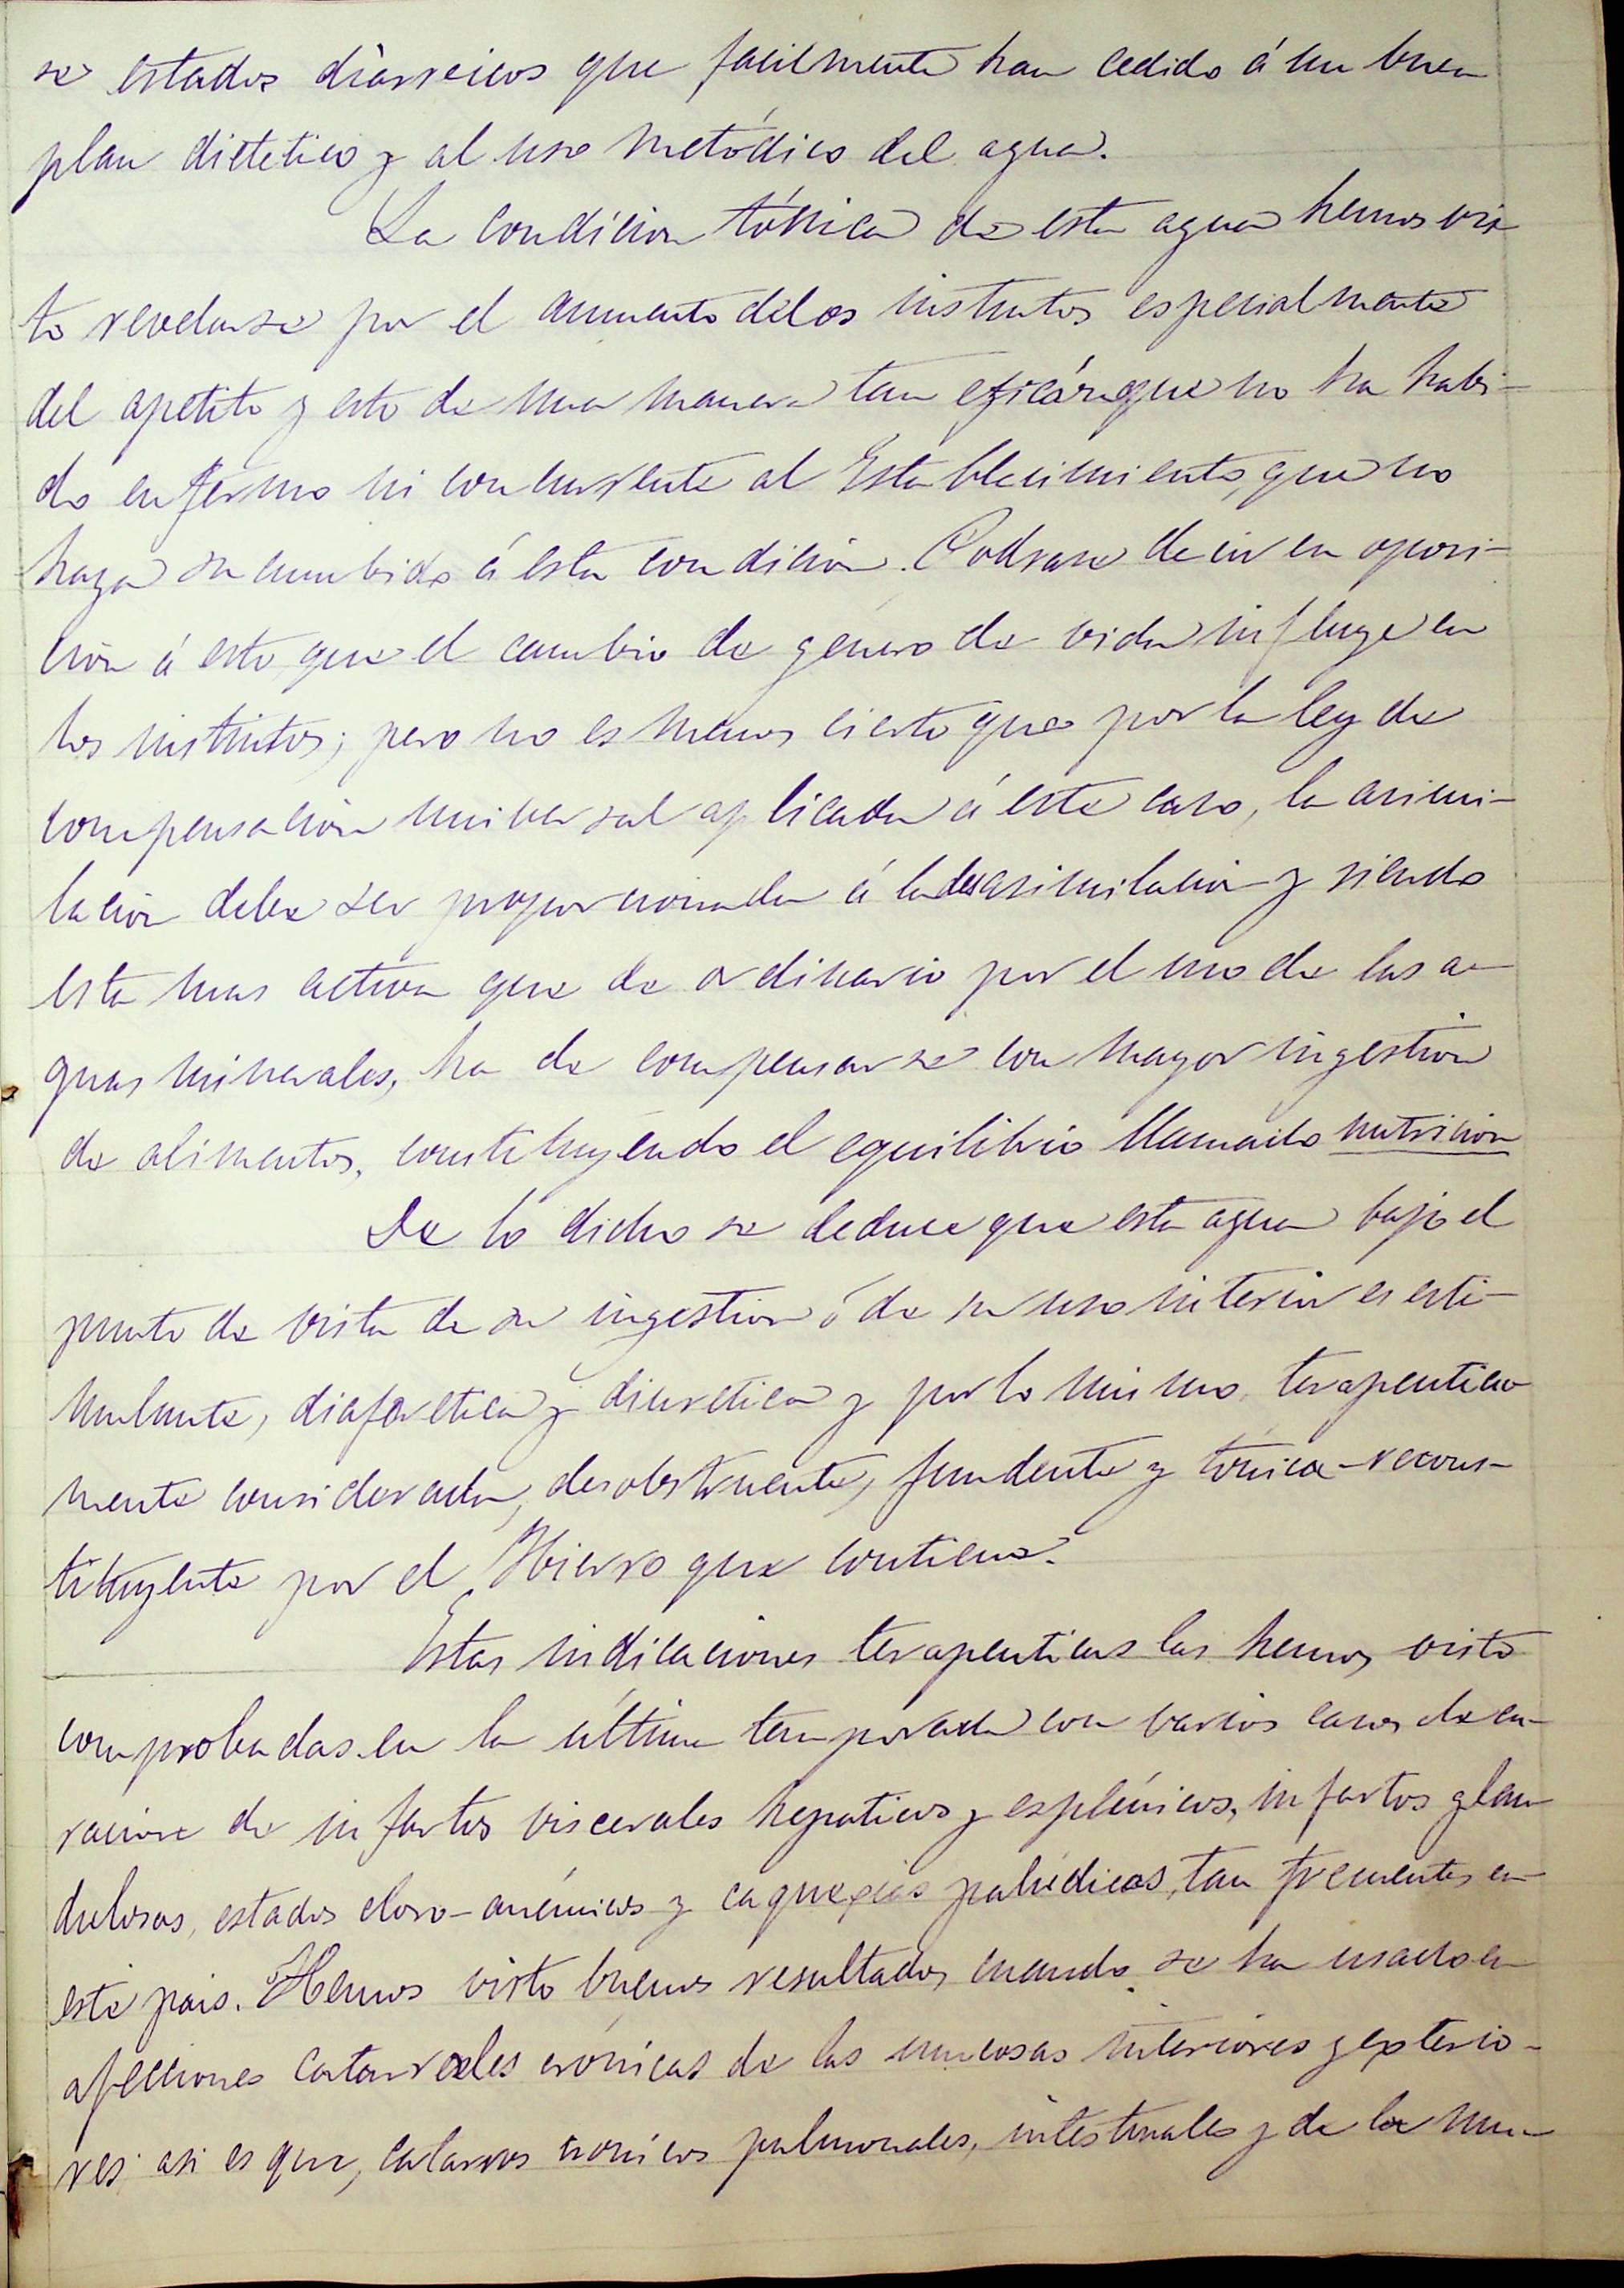 se estados diarreicos que facilmente han cedido á un buen
plan dietetico y al uso metódico del agua.
La condicion tónica de esta agua hemos vis
to revelarse por el aumento de los instintos especialmente
del apetito y esto de una manera tan eficáz que no ha habi-
do enfermo ni concurrente al Establecimiento, que no
haya sucumbido á esta condición. Podrase decir en oposi-
ción á esto, que el cambio de género de vida influye en
los instintos; pero no es menos cierto que por la ley de
compensación universal aplicada á este caso, la asimi-
lación debe ser proporcionada á la desasimilación y siendo
esta mas activa que de ordinario por el uso de las a-
guas minerales, ha de compensarse con mayor ingestion
de alimentos, constituyendo el equilibrio llamado nutricion
De lo dicho se deduce que esta agua bajo el
punto de vista de su ingestion ó de su uso interior es esti-
mulante, diaforetica y diuretica y por lo mismo, terapeutica
mente considerada, desobstruente, fundente y tónica-recons-
tituyente por el Hierro que contiene.
Estas indicaciones terapeuticas las hemos visto
comprobadas en la última temporada con varios casos de cu-
racion de infartos viscerales hepaticos y esplénicos, infartos glan
dulosos, estados cloro-anémicos y caquexias palúdicas, tan frecuentes en
este pais. Hemos visto buenos resultados cuando se ha usado en
afecciones catarrales crónicas de las mucosas interiores y exterio-
res: asi es que, catarros cronicos pulmonales, intestinales y de la mu-